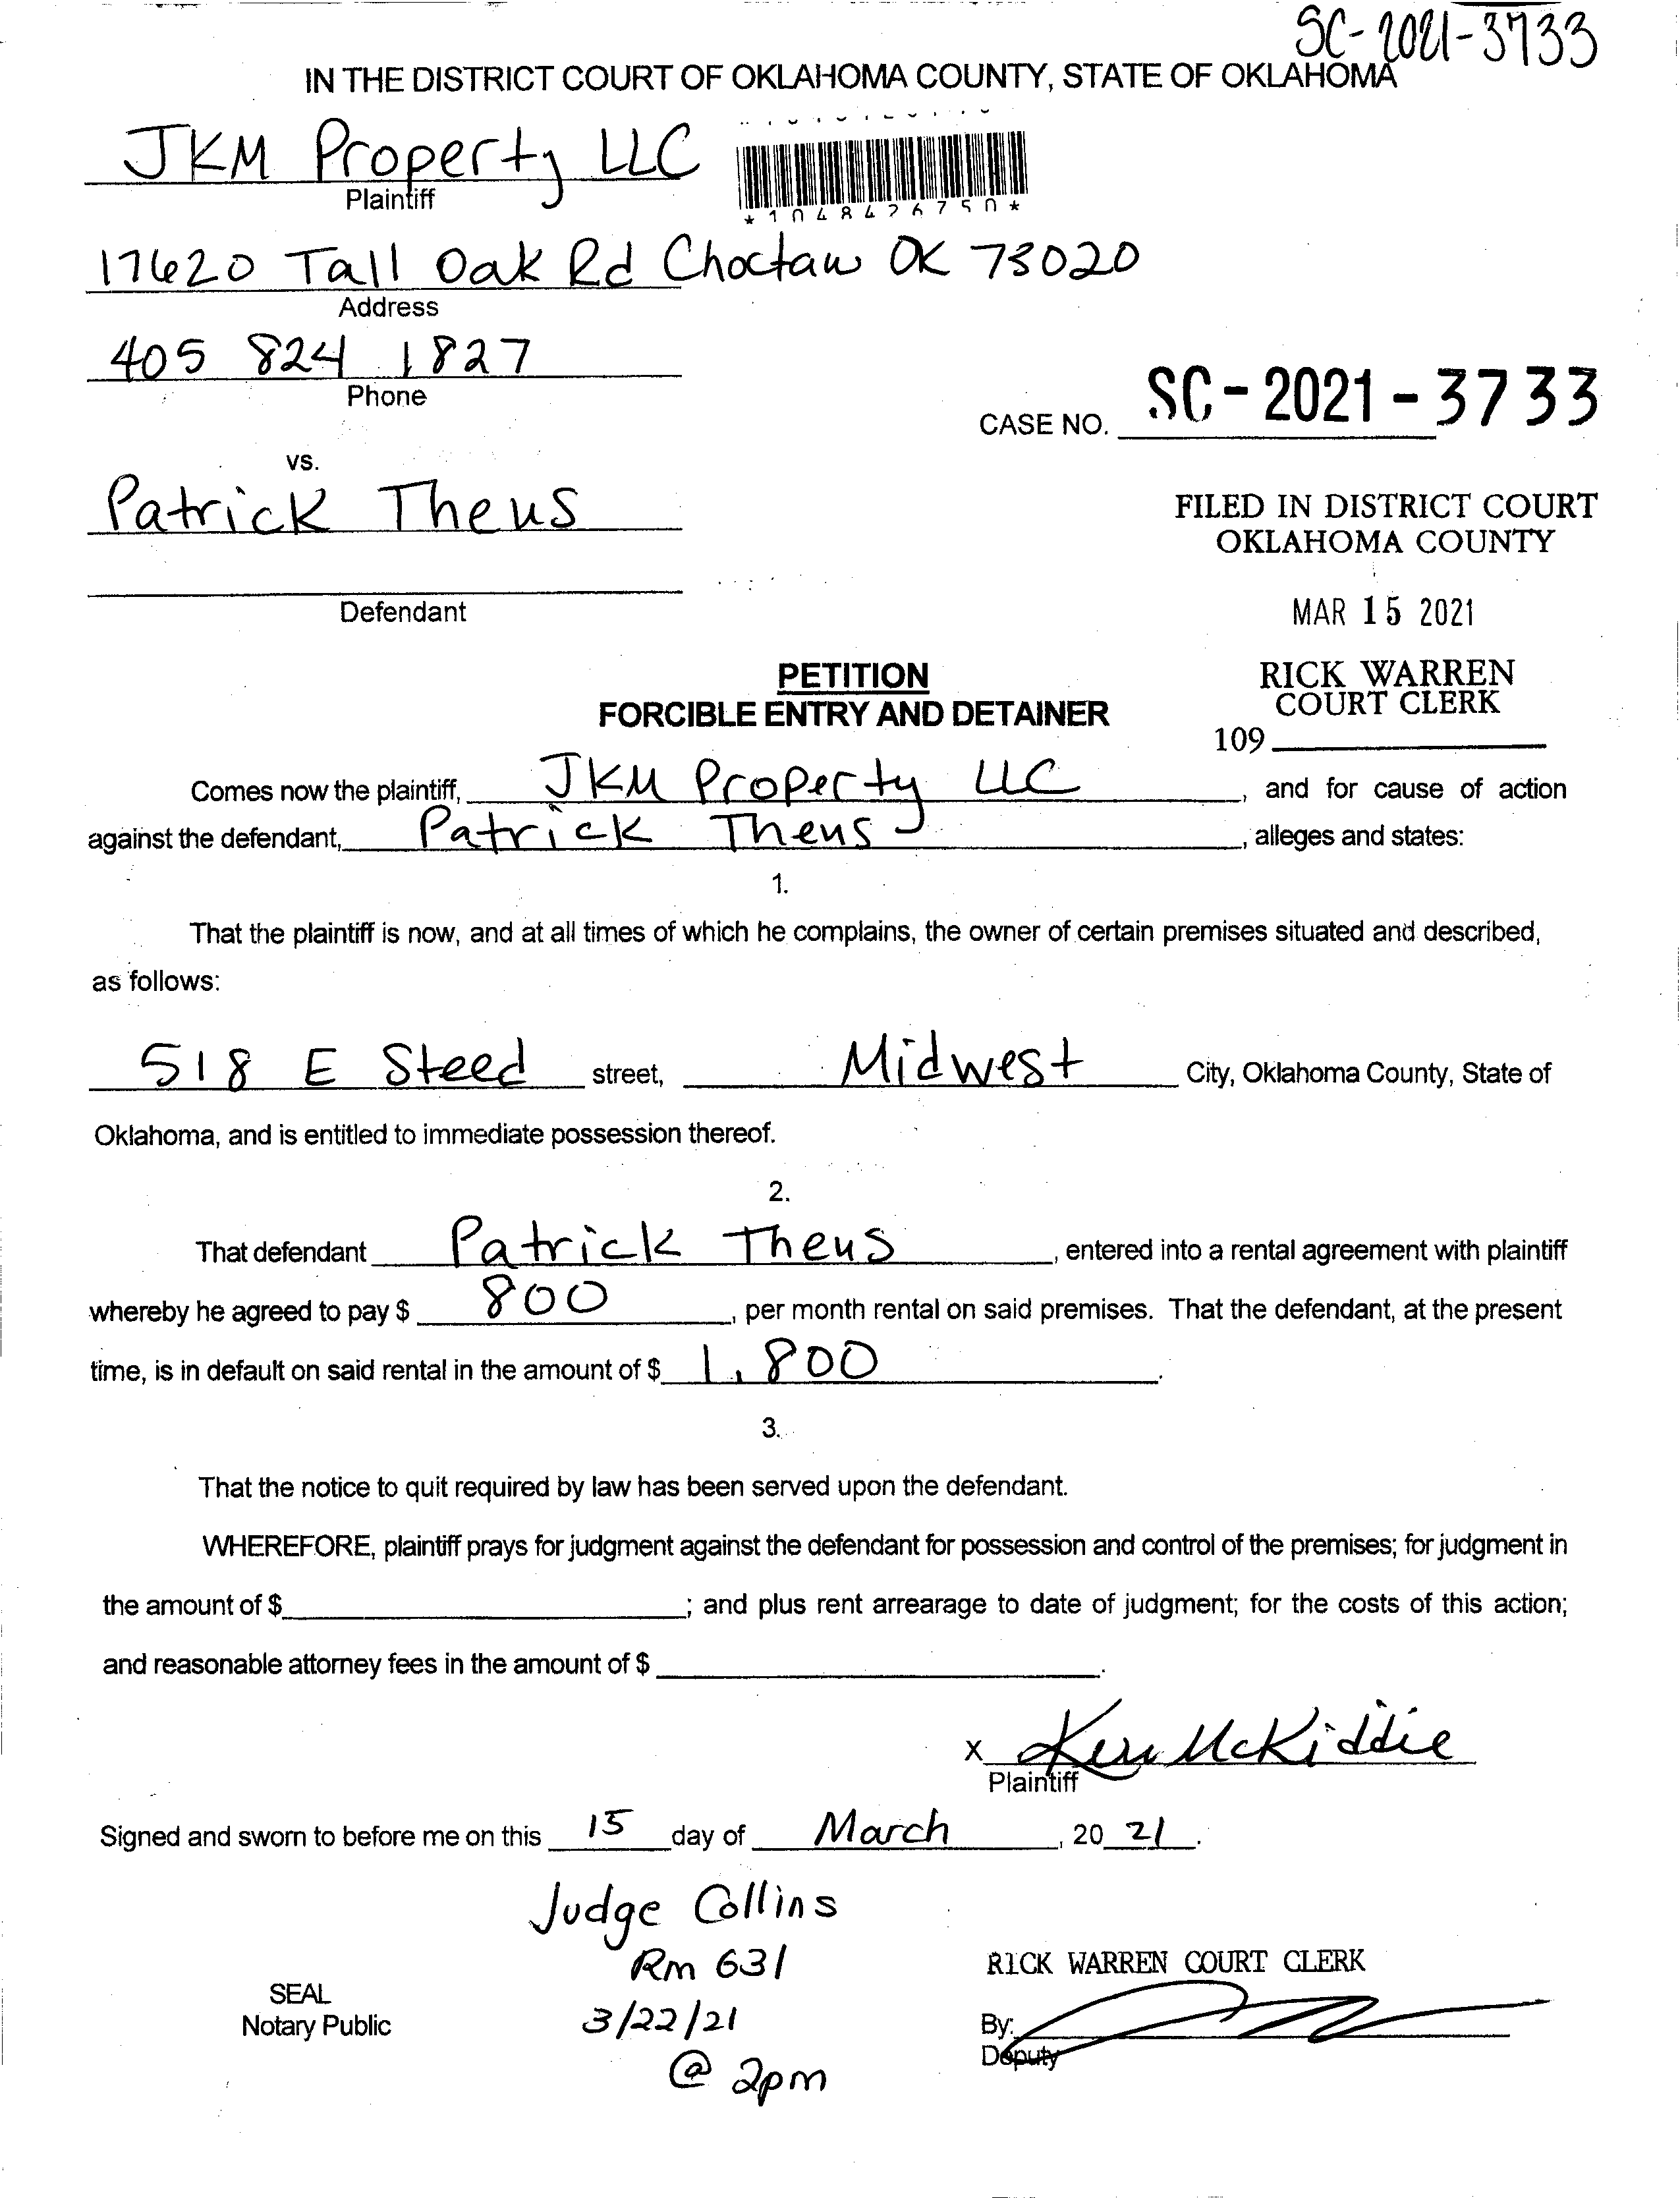 SC-2021-3733
IN THE DISTRICT COURT OF OKLAHOMA COUNTY, STATE OF OKLAHOMA
JKM Property LLC
Plaintiff
*1048426750*
17620 Tall Oak Rd Choctaw OK 73020
Address
405 824 1827
Phone
CASE NO. SC-2021-3733
vs.
Patrick Theus
FILED IN DISTRICT COURT
OKLAHOMA COUNTY
Defendant
MAR 15 2021
PETITION
FORCIBLE ENTRY AND DETAINER
RICK WARREN
COURT CLERK
109
Comes now the plaintiff, JKM Property LLC, and for cause of action
against the defendant, Patrick Theus, alleges and states:
1.
That the plaintiff is now, and at all times of which he complains, the owner of certain premises situated and described,
as follows:
518 E Steed street, Midwest City, Oklahoma County, State of
Oklahoma, and is entitled to immediate possession thereof.
2.
That defendant Patrick Theus, entered into a rental agreement with plaintiff
whereby he agreed to pay $ 800, per month rental on said premises. That the defendant, at the present
time, is in default on said rental in the amount of $ 1,800.
3.
That the notice to quit required by law has been served upon the defendant.
WHEREFORE, plaintiff prays for judgment against the defendant for possession and control of the premises; for judgment in
the amount of $ ; and plus rent arrearage to date of judgment; for the costs of this action;
and reasonable attorney fees in the amount of $ .
x Keri McKiddie
Plaintiff
Signed and sworn to before me on this 15 day of March, 20 21.
Judge Collins
Rm 631
3/22/21
@ 2pm
SEAL
Notary Public
RICK WARREN COURT CLERK
By:
Deputy